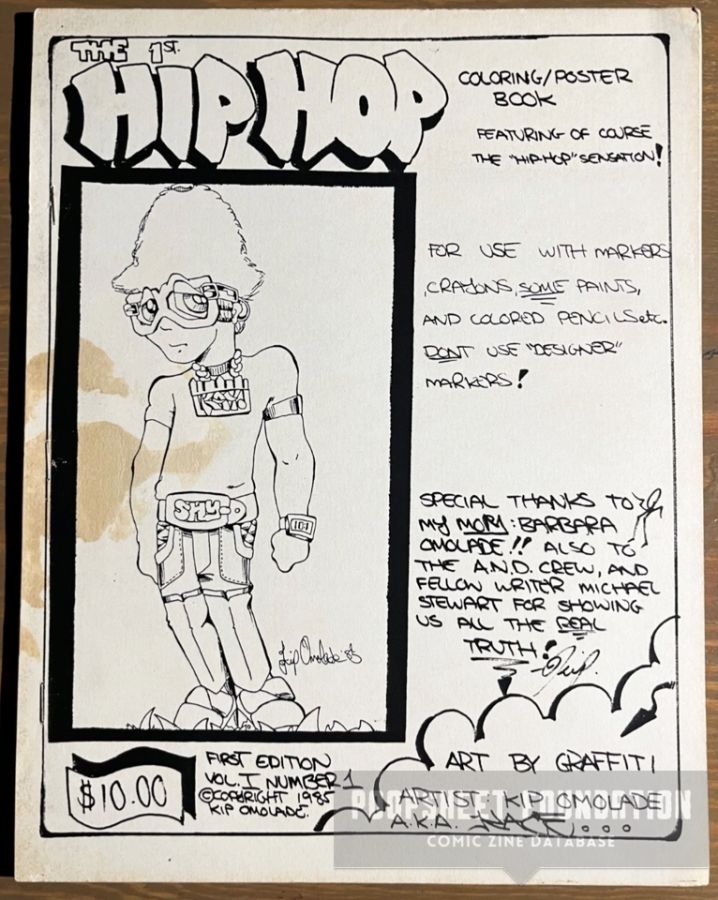 THE 1ST.
HIP HOP
COLORING/POSTER
BOOK
FEATURING OF COURSE
THE "HIP-HOP" SENSATION!
FOR USE WITH MARKERS
,CRAYONS, SOME PAINTS,
AND COLORED PENCILS etc.
DONT USE "DESIGNER"
MARKERS!
KAY
SHY-D
Kip Omolade '85
SPECIAL THANKS TO
MY MOM: BARBARA
OMOLADE!! ALSO TO
THE A.N.D. CREW, AND
FELLOW WRITER MICHAEL
STEWART FOR SHOWING
US ALL THE REAL
TRUTH!
Kip.
$10.00
FIRST EDITION
VOL. I NUMBER 1
©COPYRIGHT 1985
KIP OMOLADE.
ART BY GRAFFITI
ARTIST KIP OMOLADE
A.K.A.
PAMPHLEET FOUNDATION
COMIC ZINE DATABASE